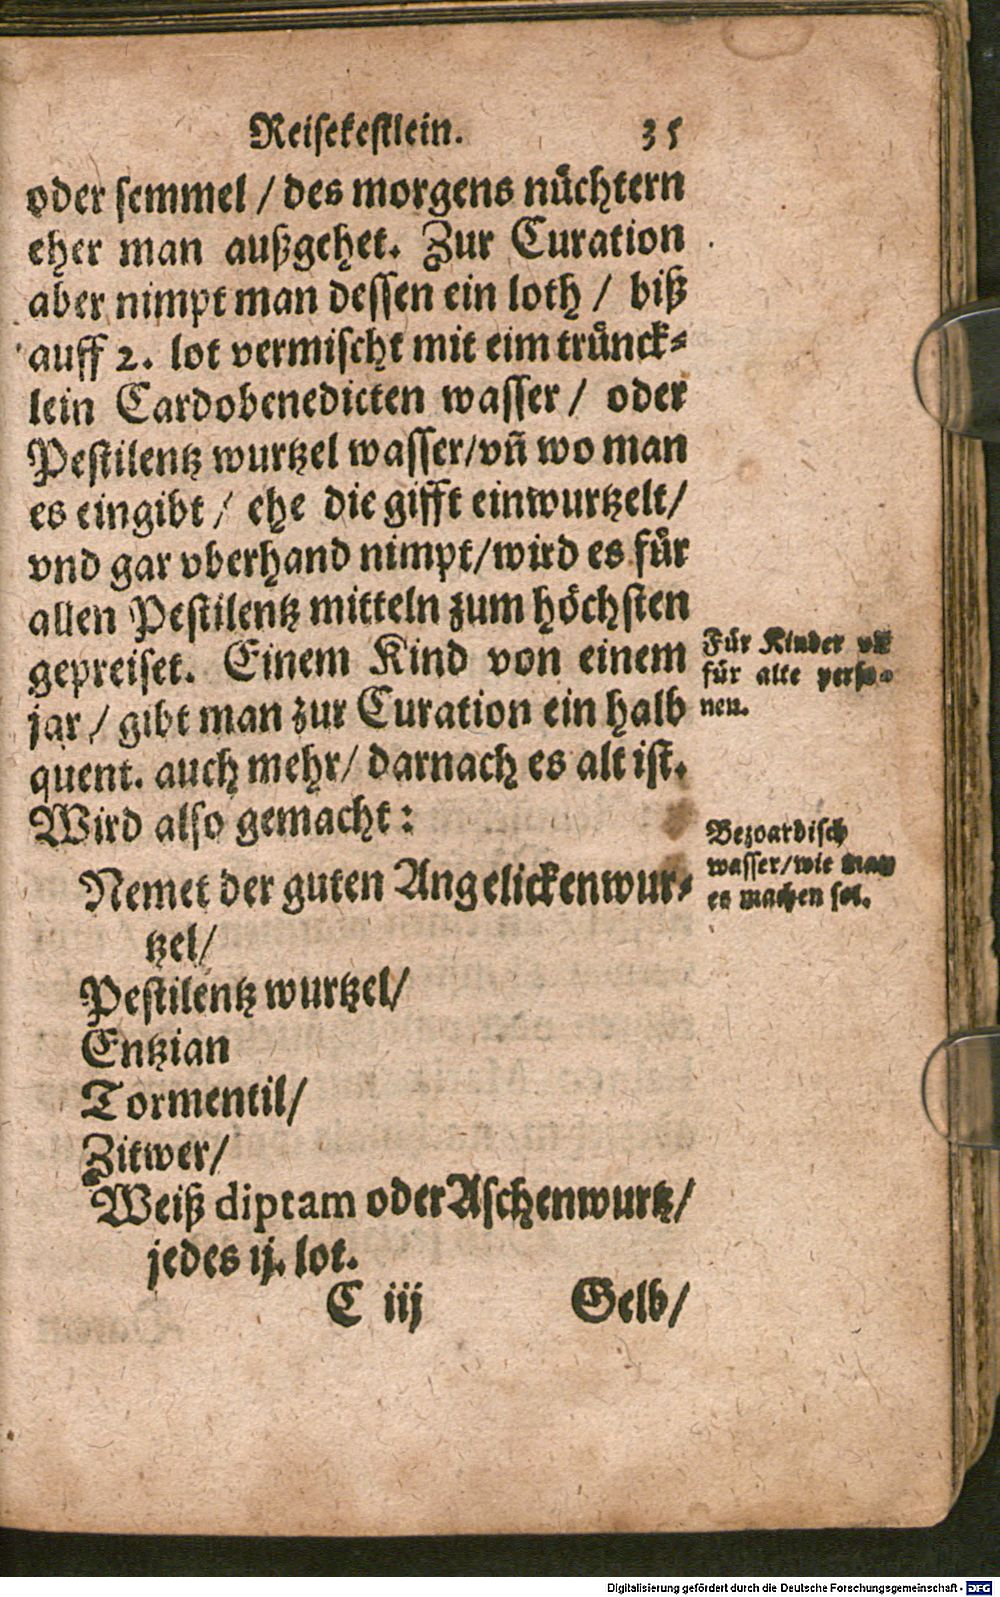 Reisekestlein. 35
oder semmel / des morgens nüchtern
eher man außgehet. Zur Curation
aber nimpt man dessen ein loth / biß
auff 2. lot vermischt mit eim trünck-
lein Cardobenedicten wasser / oder
Pestilentz wurtzel wasser/vñ wo man
es eingibt / ehe die gifft einwurtzelt/
vnd gar vberhand nimpt/wird es für
allen Pestilentz mitteln zum höchsten
gepreiset. Einem Kind von einem
jar / gibt man zur Curation ein halb
quent. auch mehr/ darnach es alt ist.
Wird also gemacht:
Für Kinder vñ
für alte perso-
nen.
Bezoardisch
wasser/wie man
es machen sol.
Nemet der guten Angelickenwur-
tzel/
Pestilentz wurtzel/
Entzian
Tormentil/
Zitwer/
Weiß diptam oder Aschenwurtz/
jedes ij. lot.
C iij Gelb/
Digitalisierung gefördert durch die Deutsche Forschungsgemeinschaft - DFG